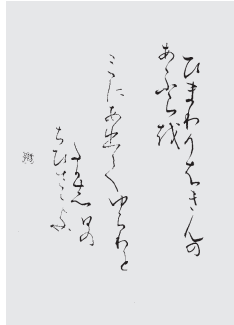 ひまわりはきんの
あふらを
みにあひてゆらりと
たかし日の
ちひささよ